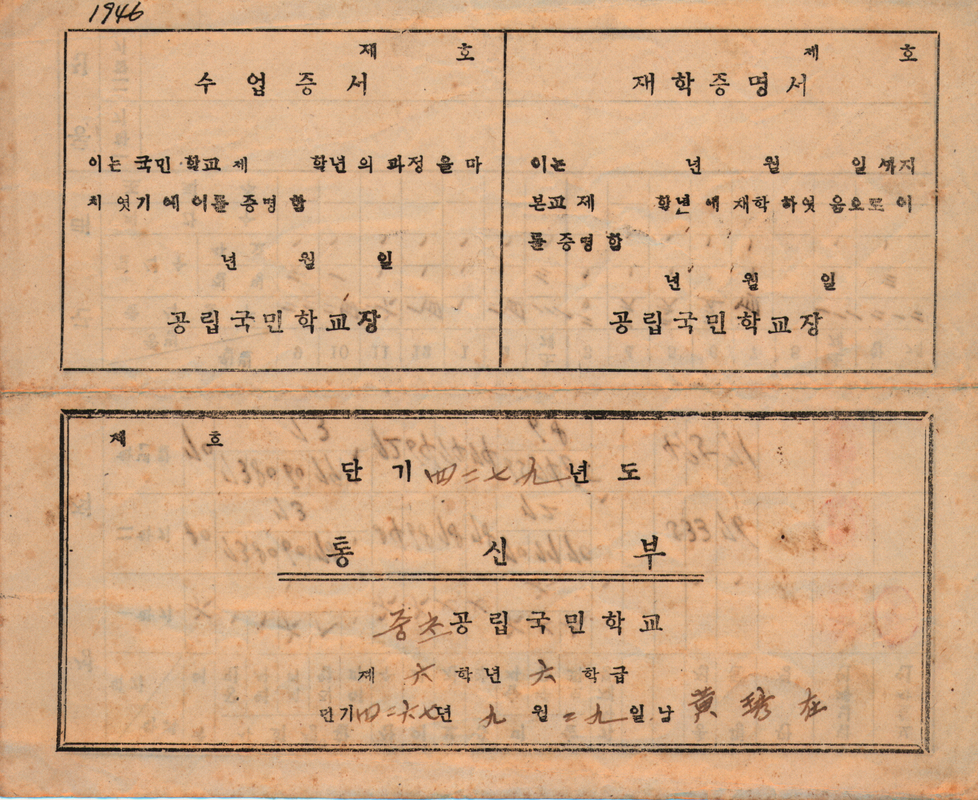 1946
제 호
수업증서
이는 국민 학교 제 학년 의 과정 을 마
치 엿기 에 이를 증명 함
년 월 일
공립국민학교장
제 호
재학증명서
이는 년 월 일 까지
본교 제 학년 에 재학 하엿 음으로 이
를 증명 함
년 월 일
공립국민학교장
제 호
단기 四二七九 년도
통신부
공립국민학교
제 六 학년 六 학급
단기 四二六七년 九 월 二九 일 남 黄 琇 在